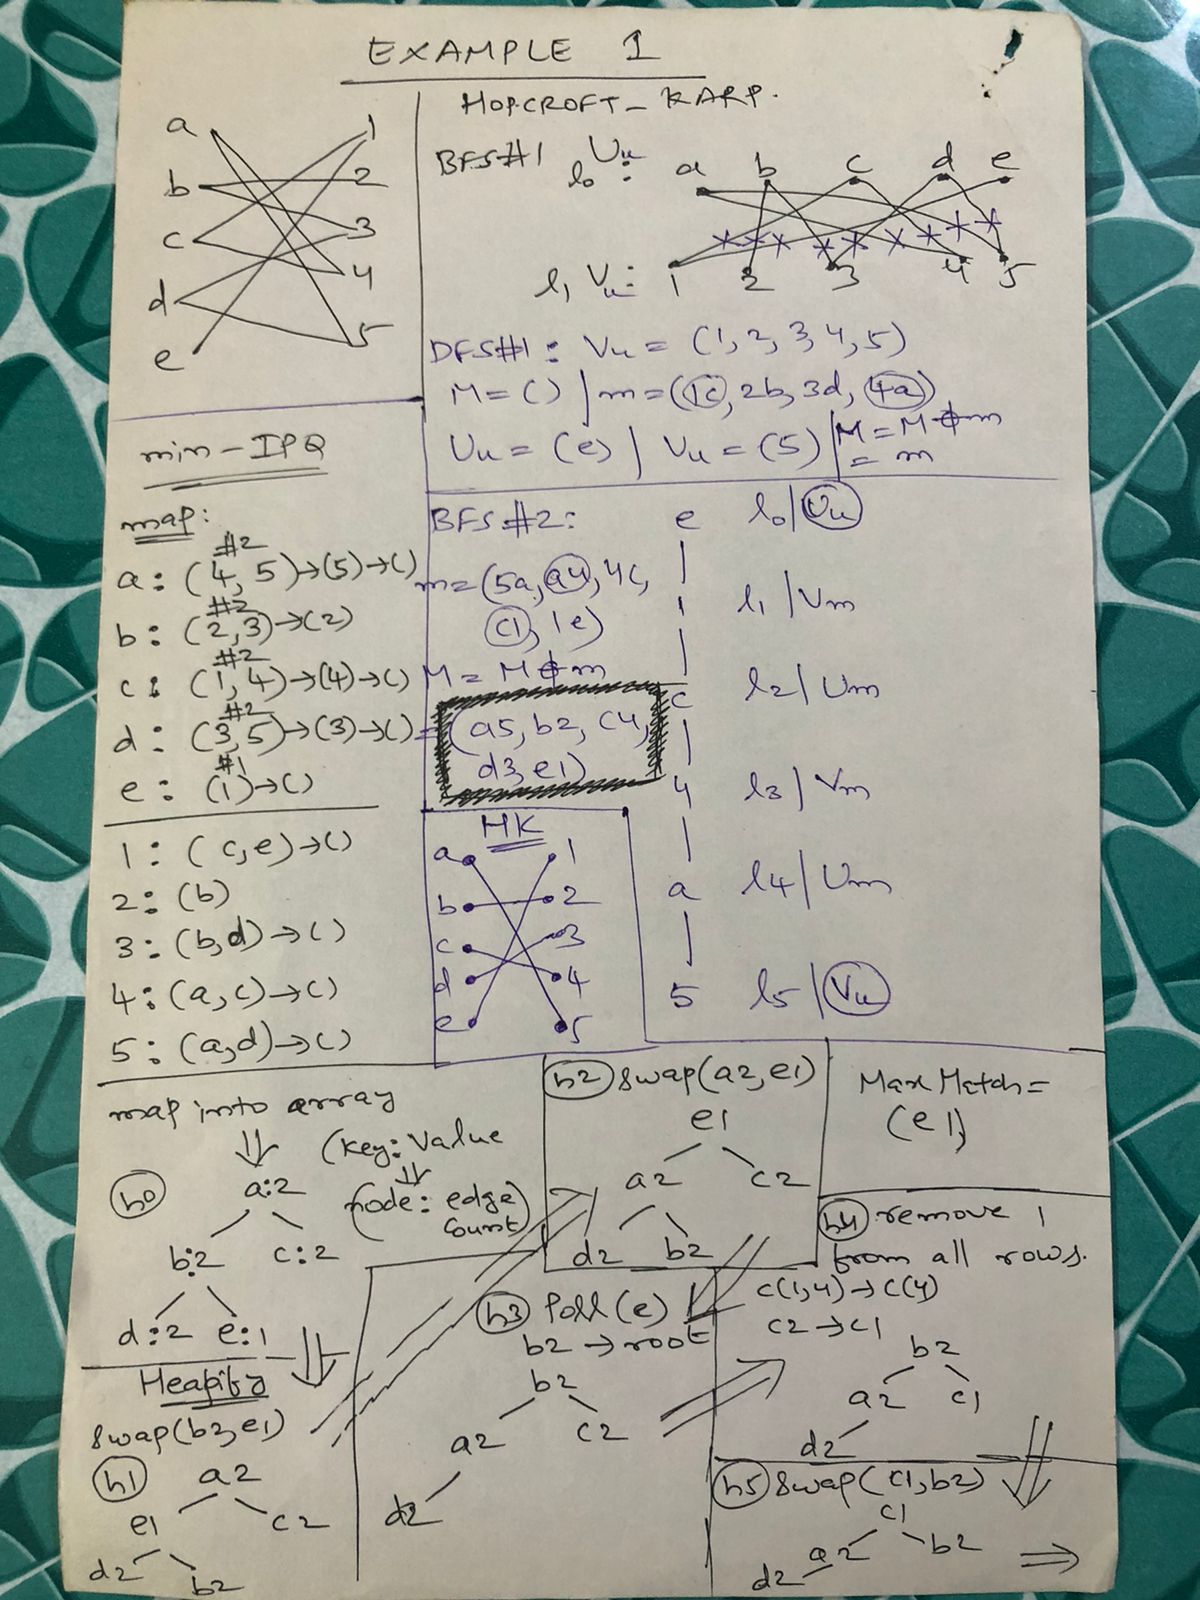 EXAMPLE 1
a
b
c
d
e
1
2
3
4
5
HOPCROFT-KARP.
BFS#1 l0 Uu:
a b c d e
l1 Vu:
1 2 3 4 5
DFS#1: Vu = (1, 2, 3, 4, 5)
M = () | m = (1c, 2b, 3d, 4a)
Uu = (e) | Vu = (5) | M = M ⊕ m
= m
min-IPQ
map:
#2
a: (4, 5)→(5)→()
#2
b: (2,3)→(2)
#2
c: (1,4)→(4)→()
#2
d: (3,5)→(3)→()
#1
e: (1)→()
1: (c,e)→()
2: (b)
3: (b,d)→()
4: (a,c)→()
5: (a,d)→()
BFS#2:
m = (5a, a4, 4c,
c1, 1e)
M = M ⊕ m
= (a5, b2, c4,
d3, e1)
e l0 | Uu
1 l1 | Vm
c l2 | Um
4 l3 | Vm
a l4 | Um
5 l5 | Vu
HK
a 1
b 2
c 3
d 4
e 5
map into array
(Key: Value
node: edge
count)
h0
a:2
b:2 c:2
d:2 e:1
Heapify
swap(b2,e1)
h1 a2
e1 c2
d2 b2
h2 swap(a2,e1)
e1
a2 c2
d2 b2
h3 Poll(e)
b2→root
b2
a2 c2
d2
Max Match =
(e1)
h4 remove 1
from all rows.
c(1,4)→c(4)
c2→c1
b2
a2 c1
d2
h5 swap(c1,b2)
c1
a2 b2
d2